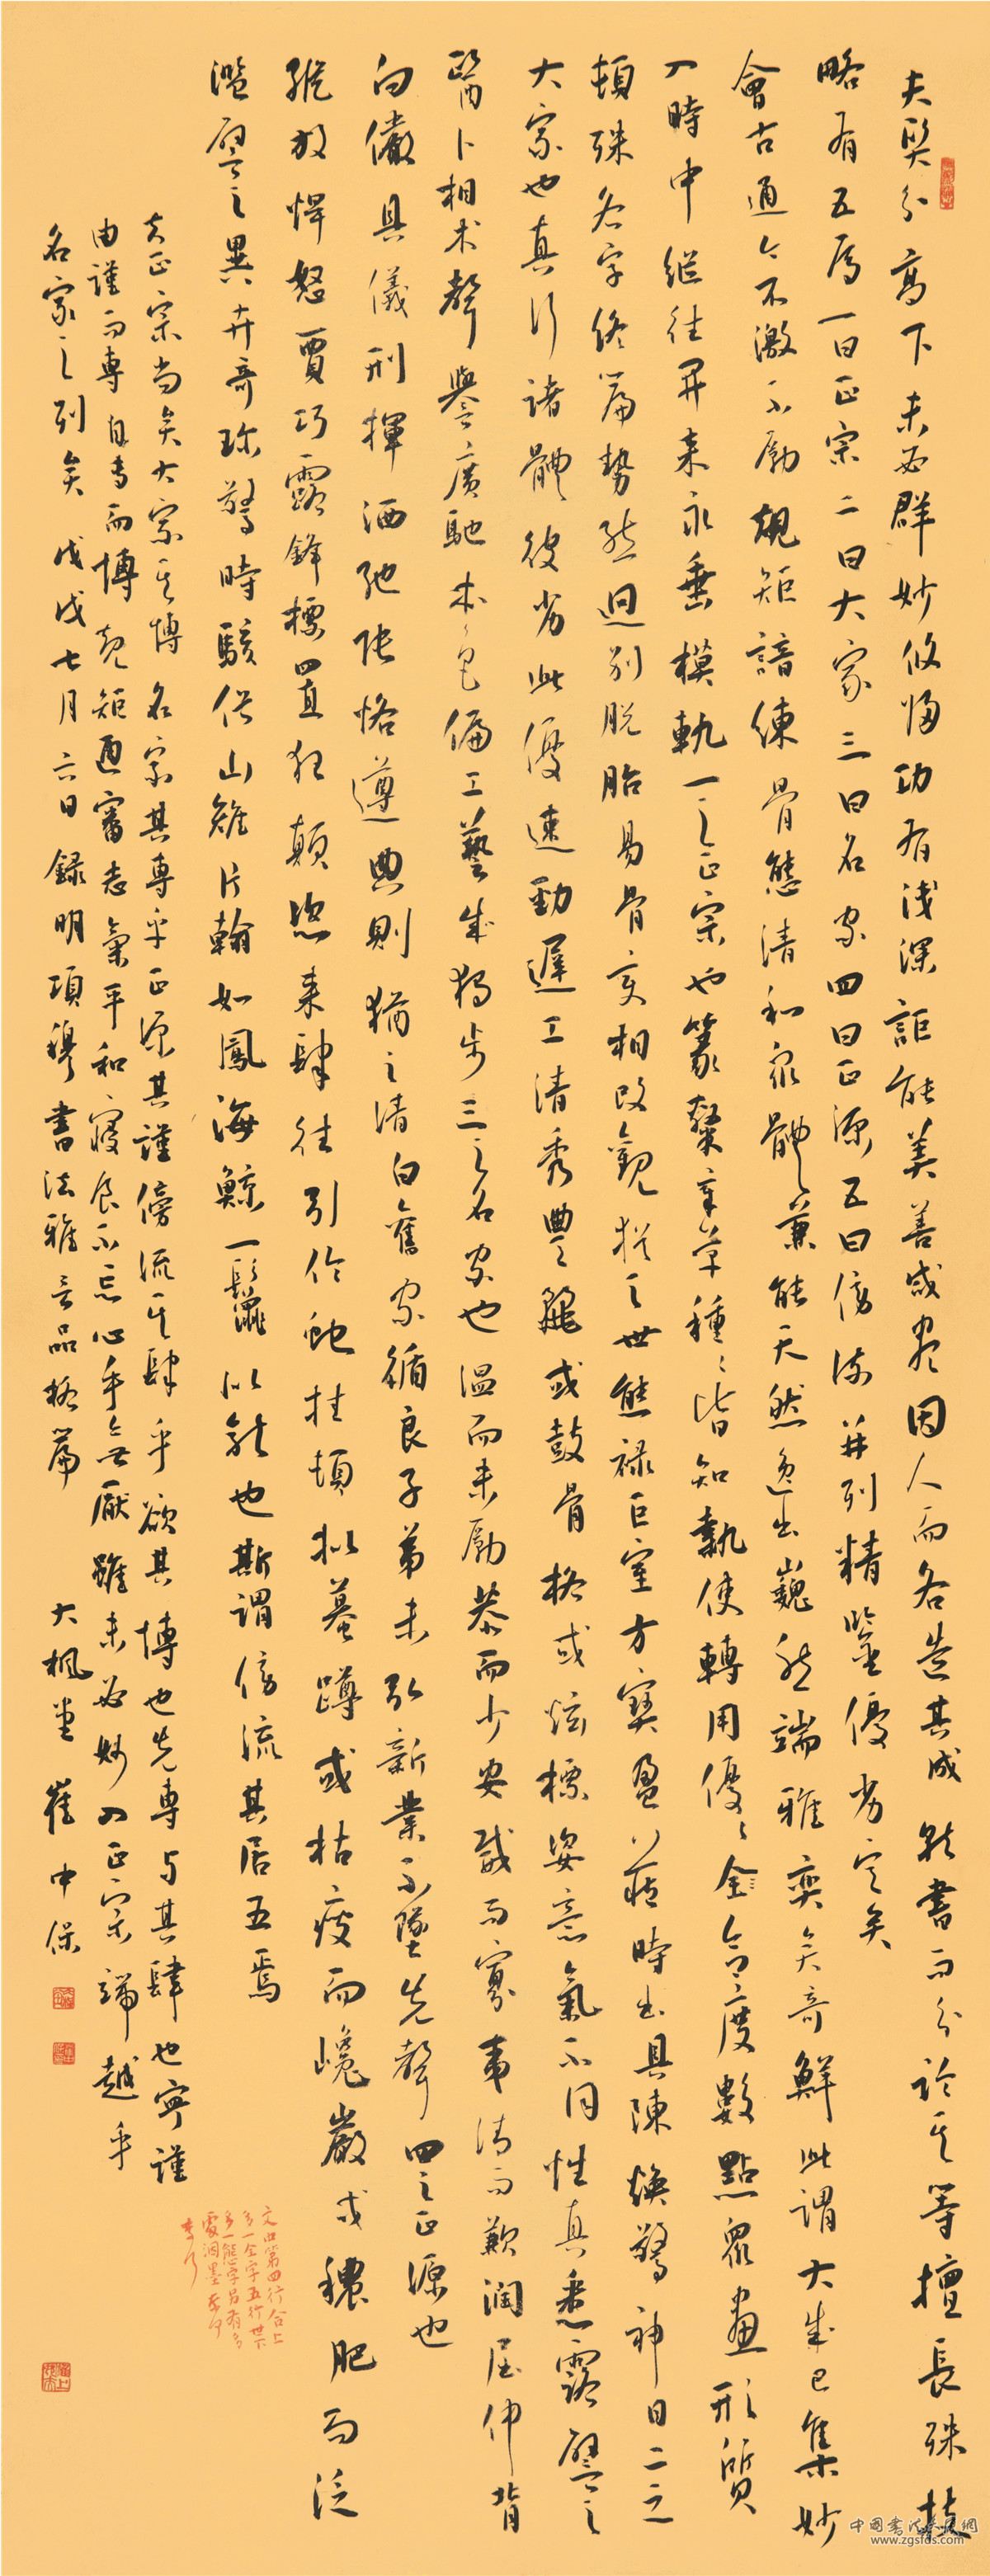 夫質分高下未必群妙攸歸功有淺深詎能美善咸盡因人而各造其成就書而分論其等擅長殊技
略有五焉一曰正宗二曰大家三曰名家四曰正源五曰傍流并列精鑒優劣定矣
會古通今不激不勵規矩諳練骨態清和眾體兼能天然逸出巍然端雅奕矣奇鮮此謂大成已集妙
入時中繼往開來永垂模軌一之正宗也篆隸章草種種皆知執使轉用優優全合度數點眾畫形質
頓殊各字終篇勢態迥別脫胎易骨变相改觀猶之世態祿巨室方寶盈藏時出具陳煥驚神目二之
大家也真行諸體彼劣此優速勁遲工清秀豐麗或鼓骨格或炫標姿意氣不同性真悉露譬之
醫卜相术聲譽廣馳本色偏工藝成獨步三之名家也溫而未勵恭而少安威而寡夷清而歉潤屈伸背
向儼具儀刑揮洒弛張恪遵典則猶之清白舊家循良子弟未弘新業不墜先聲四之正源也
縱放悍怒賈巧露鋒標置狂顛恣來肆往引倫蛇挂頓拟蟇蹲或枯瘦而巉巖或穠肥而泛
濫譬之異卉奇珍驚時駭俗山雉片翰如鳳海鯨一鬣似龍也斯謂傍流其居五焉
夫正宗尚矣大家其博名家其專乎正源其謹傍流其肆乎欲其博也先專与其肆也寧謹
由謹而專自專而博規矩通審志氣平和寢食不忘心手无厭雖未必妙入正宗端越乎
名家之列矣 戊戌七月六日錄明項穆書法雅言品格篇 大楓堂 崔中保
文中第四行合上
多一全字五行世下
多一態字另有多
處洇墨
中国书法
www.zgsfds.com